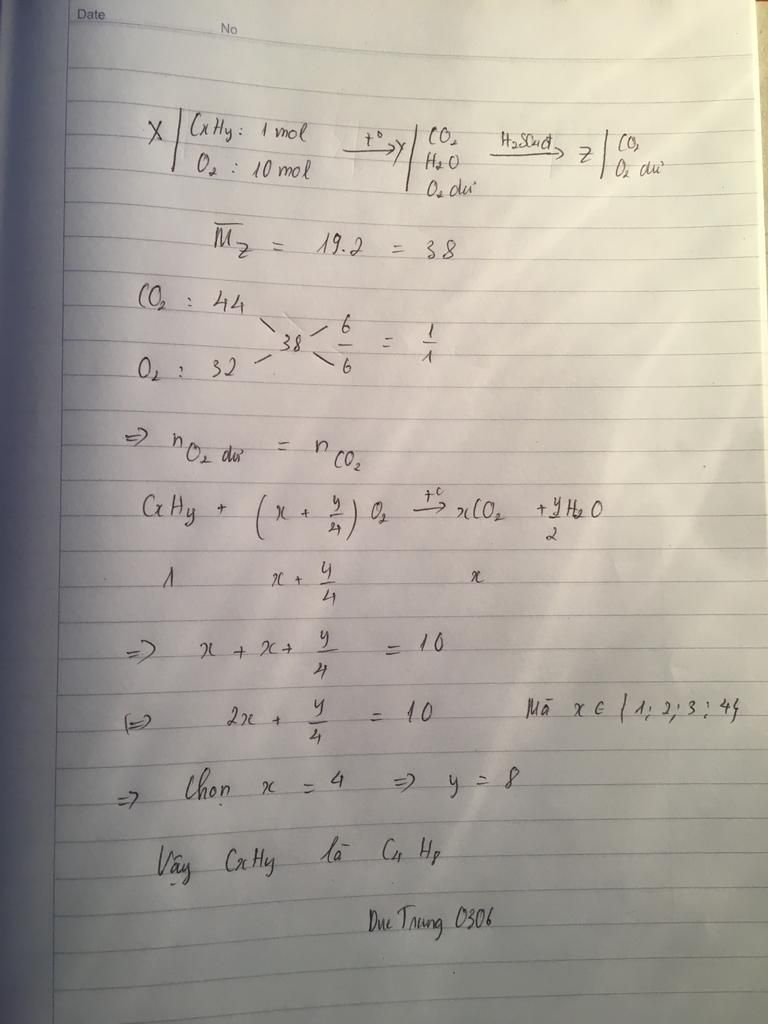 Date
No
X | CxHy : 1 mol →(t°) Y | CO₂ →(H₂SO₄đ) Z | CO₂
O₂ : 10 mol H₂O O₂ dư
O₂ dư
M̅_Z = 19.2 = 38
CO₂ : 44 6
38 — = 1/1
O₂ : 32 6
=> n O₂ dư = n CO₂
CxHy + (x + y/4) O₂ →(t°) xCO₂ + y/2 H₂O
1 x + y/4 x
=> x + x + y/4 = 10
<=> 2x + y/4 = 10 Mà x ∈ {1; 2; 3; 4}
=> Chọn x = 4 => y = 8
Vậy CxHy là C₄H₈
Duc Trung 0306